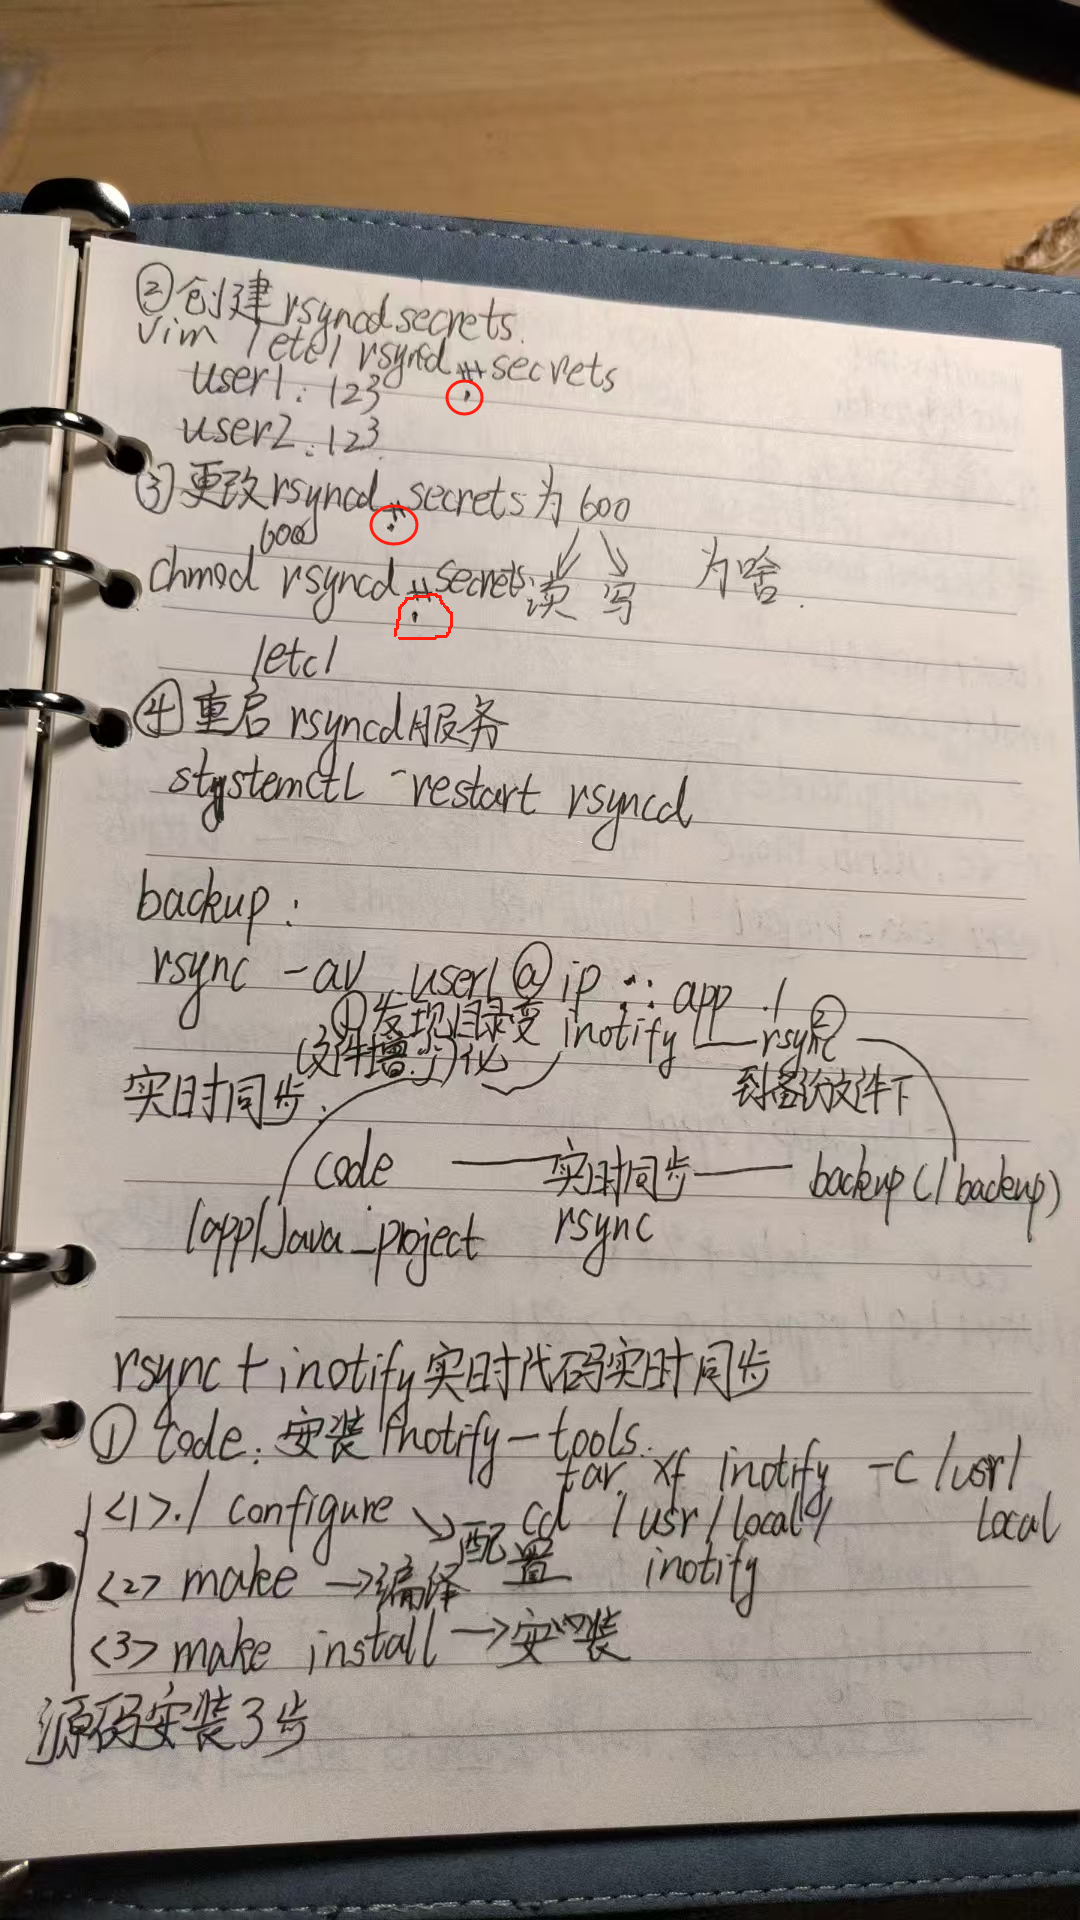 ②创建rsyncd secrets.
vim /etc/rsyncd.secrets
user1:123
user2:123
③更改rsyncd.secrets为600
600
chmod rsyncd.secrets 读 写 为啥.
/etc/
④重启rsyncd服务
systemctl -restart rsyncd
backup:
rsync -av user1@ip::app ./
①发现目录变 inotify — rsync ②
(文件增少)化
到备份文件下
实时同步.
code — 实时同步 — backup(/backup)
/app/Java_project rsync
rsync+inotify实时代码实时同步
① code: 安装inotify-tools.
tar xf inotify -C /usr/
local
<1>./configure ↘配置 cd /usr/local/
inotify
<2> make →编译
<3> make install →安装
源码安装3步